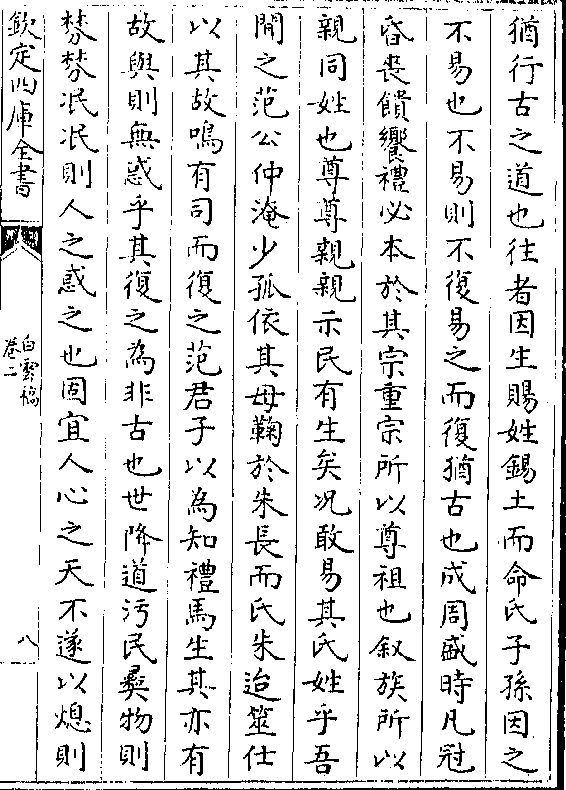 猶行古之道也往者因生賜姓錫土而命氏子孫因之
不易也不易則不復易之而復猶古也成周盛時凡冠
昏喪饋饗禮必本於其宗重宗所以尊祖也叙族所以
親同姓也尊尊親親示民有生矣况敢易其氏姓乎吾
聞之范公仲淹少孤依其母鞠於朱長而氏朱迨筮仕
以其故鳴有司而復之范君子以為知禮馬生其亦有
故與則無惑乎其復之為非古也世降道污民彛物則
棼棼泯泯則人之惑之也固宜人心之天不遂以熄則
欽定四庫全書
白雲稿
卷二
八